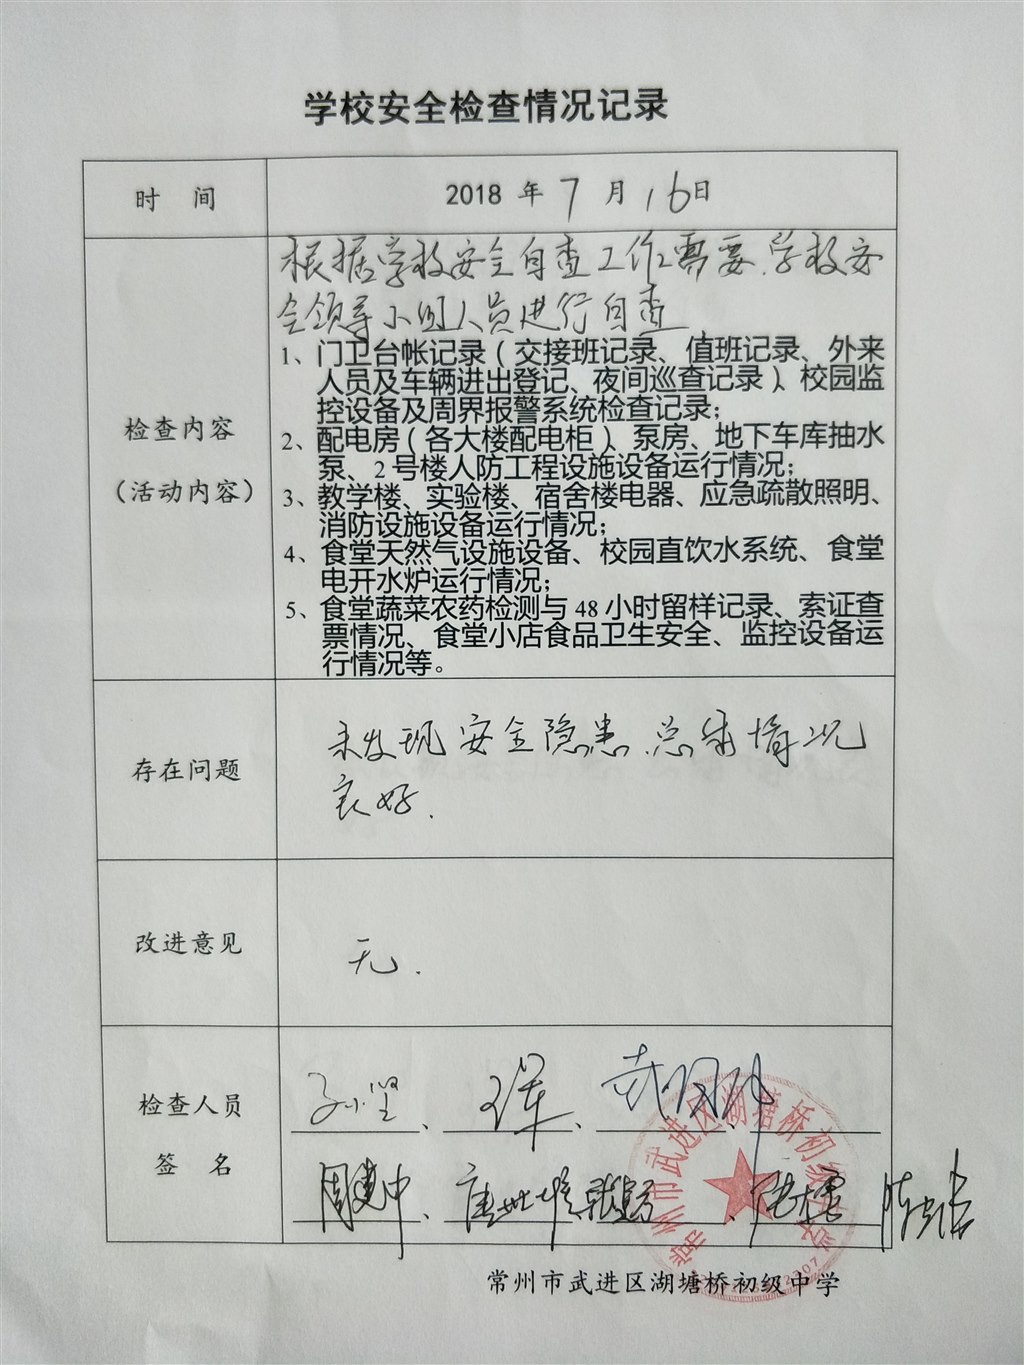 学校安全检查情况记录
时 间
2018 年 7 月 16日
检查内容
（活动内容）
根据学校安全自查工作需要，学校安
全领导小组人员进行自查
1、门卫台帐记录（交接班记录、值班记录、外来
人员及车辆进出登记、夜间巡查记录）、校园监
控设备及周界报警系统检查记录；
2、配电房（各大楼配电柜）、泵房、地下车库抽水
泵、2 号楼人防工程设施设备运行情况；
3、教学楼、实验楼、宿舍楼电器、应急疏散照明、
消防设施设备运行情况；
4、食堂天然气设施设备、校园直饮水系统、食堂
电开水炉运行情况；
5、食堂蔬菜农药检测与 48 小时留样记录、索证查
票情况、食堂小店食品卫生安全、监控设备运
行情况等。
存在问题
未发现安全隐患，总体情况
良好.
改进意见
无.
检查人员
签 名
周建中
常州市武进区湖塘桥初级中学
常州市武进区湖塘桥初级中学